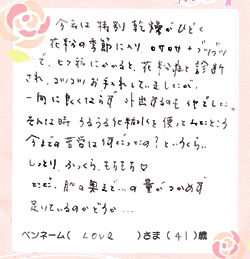 今年は 特別 乾燥がひど
花粉の季節に入り、カサカサ+ブツブツ
で、ヒフ科にかかると、花粉症と診断
され、コツコツお手入れしていましたが、
一向に良くならず 外出するのも
そんな時 うるうる化粧水を使って
今までの苦労は何だったの？というくらい
しっとり、ふっくら、もちもち♡
ただ、肌の奥まで…の量がつかめず
足りているのかどうか…
ペンネーム( LOVE )さま (41)歳